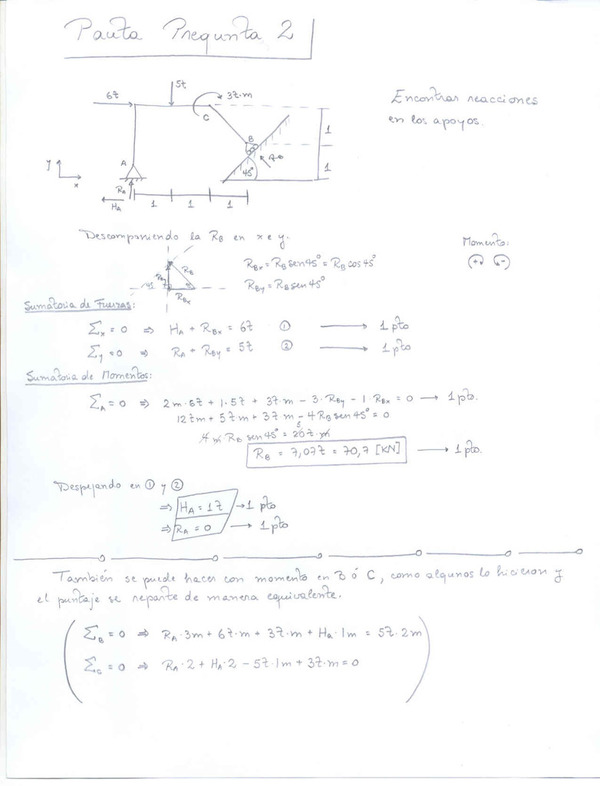 Pauta Pregunta 2
6t
5t
3t·m
C
Encontrar reacciones
en los apoyos.
1
B
A
45°
1
y
x
RA
HA
1 1 1
Descomponiendo la RB en x e y.
Momento:
RBx = RB sen 45° = RB cos 45°
RB
RBy = RB sen 45°
RBx
Sumatoria de Fuerzas:
Σx = 0 ⇒ HA + RBx = 6t ① → 1 pto
Σy = 0 ⇒ RA + RBy = 5t ② → 1 pto
Sumatoria de Momentos:
ΣA = 0 ⇒ 2m·6t + 1·5t + 3t·m - 3·RBy - 1·RBx = 0 → 1 pto.
12tm + 5tm + 3tm - 4RB sen 45° = 0
4m RB sen 45° = 20t·m
5
RB = 7,07t = 70,7 [KN] → 1 pto.
Despejando en ① y ②
⇒ HA = 1t → 1 pto
⇒ RA = 0 → 1 pto
También se puede hacer con momento en B ó C, como algunos lo hicieron y
el puntaje se reparte de manera equivalente.
ΣB = 0 ⇒ RA·3m + 6t·m + 3t·m + HA·1m = 5t·2m
ΣC = 0 ⇒ RA·2 + HA·2 - 5t·1m + 3t·m = 0